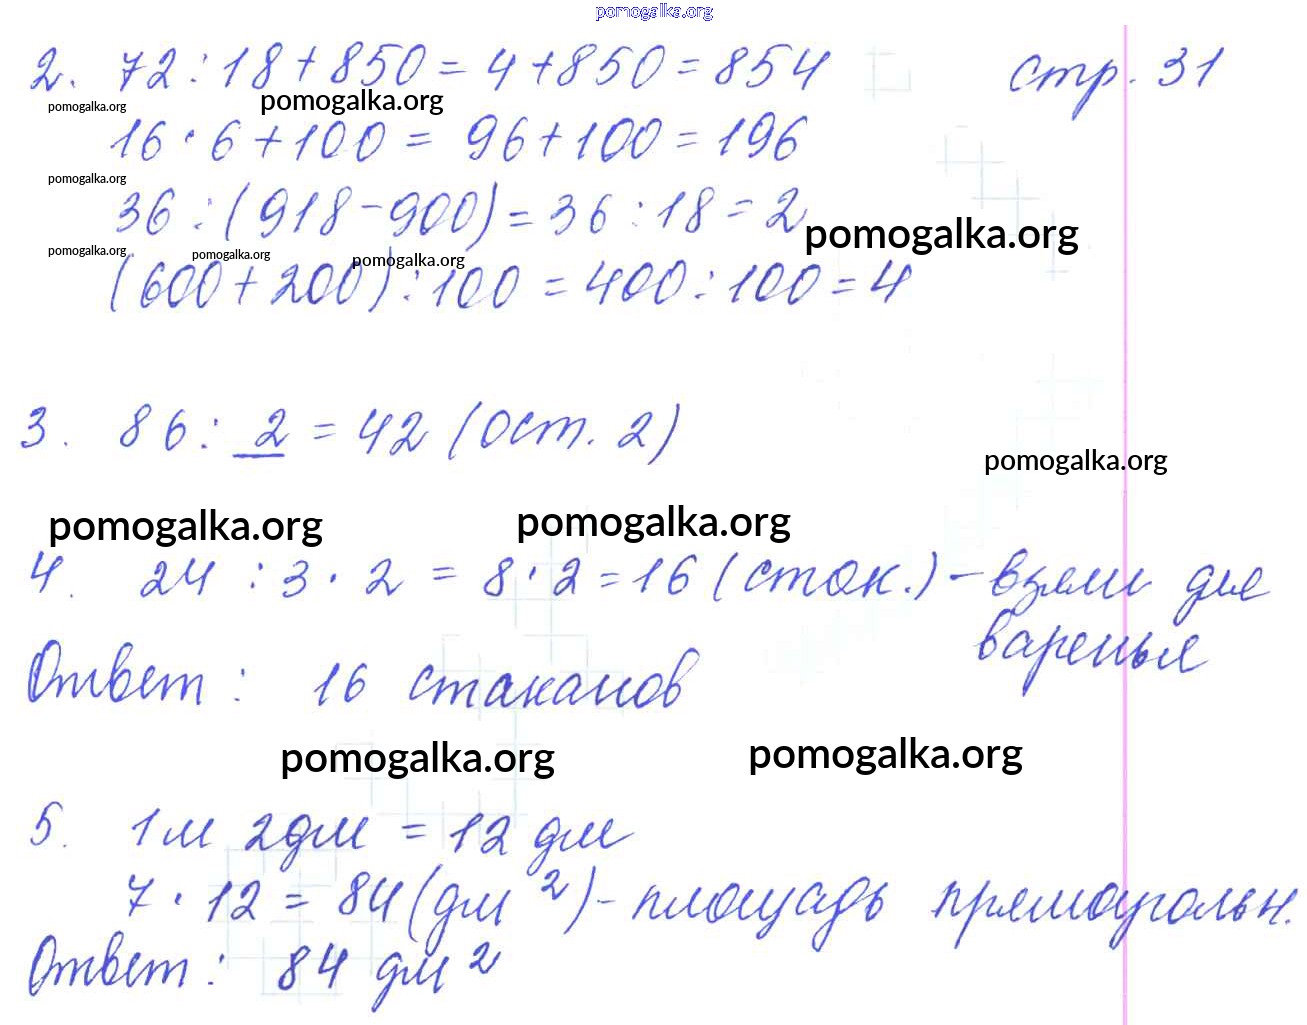 pomogalka.org
2. 72 : 18 + 850 = 4 + 850 = 854 стр. 31
pomogalka.org pomogalka.org
16 · 6 + 100 = 96 + 100 = 196
pomogalka.org
36 : (918 - 900) = 36 : 18 = 2
pomogalka.org
pomogalka.org pomogalka.org pomogalka.org
(600 + 200) : 100 = 400 : 100 = 4
3. 86 : 2 = 42 (Ост. 2)
pomogalka.org
pomogalka.org pomogalka.org
4. 24 : 3 · 2 = 8 · 2 = 16 (стак.) - взяли для
варенья
Ответ : 16 стаканов
pomogalka.org pomogalka.org
5. 1м 2дм = 12 дм
7 · 12 = 84 (дм²) - площадь прямоугольн.
Ответ : 84 дм²